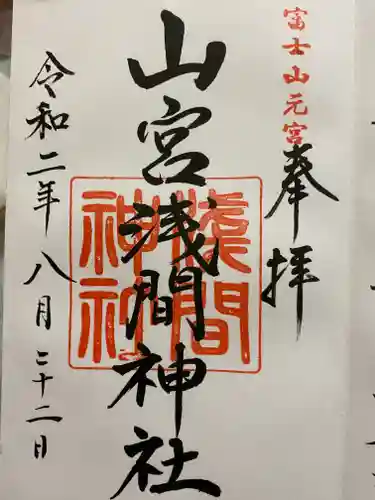 富士山元宮
奉拝
山宮浅間神社
浅間
神社
令和二年八月二十二日